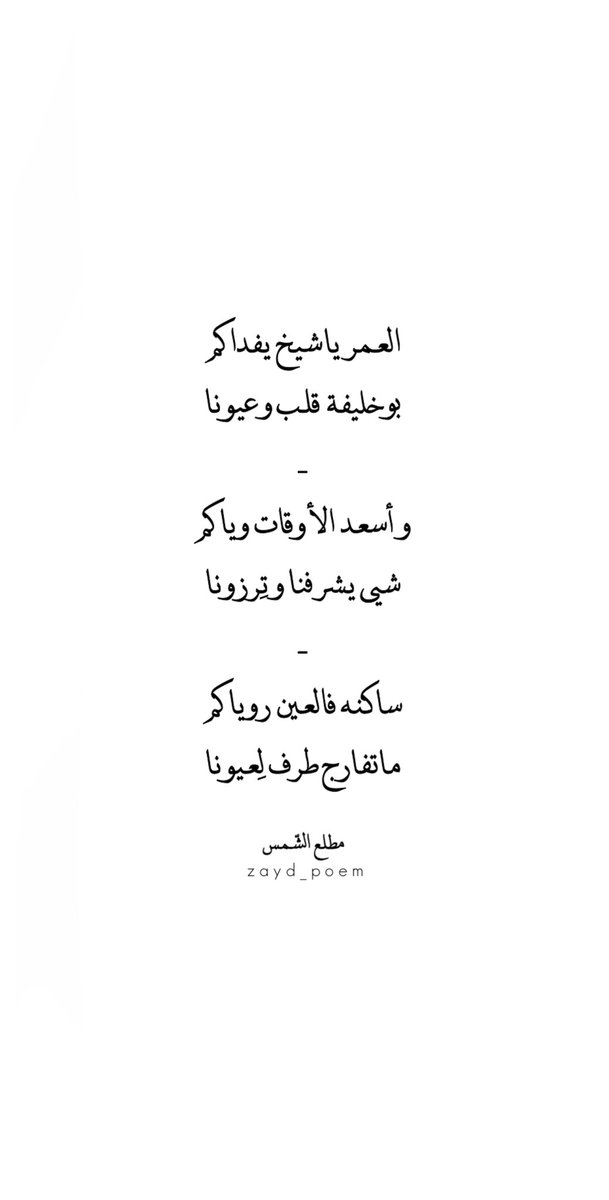 العمر ياشيخ يفداكم
بوخليفة قلب وعيونا
_
و أسعد الأوقات وياكم
شيى يشرفنا وتِرزونا
_
ساكنه فالعين روياكم
ماتفارج طرف لِعيونا
مطلع الشّمس
zayd_poem